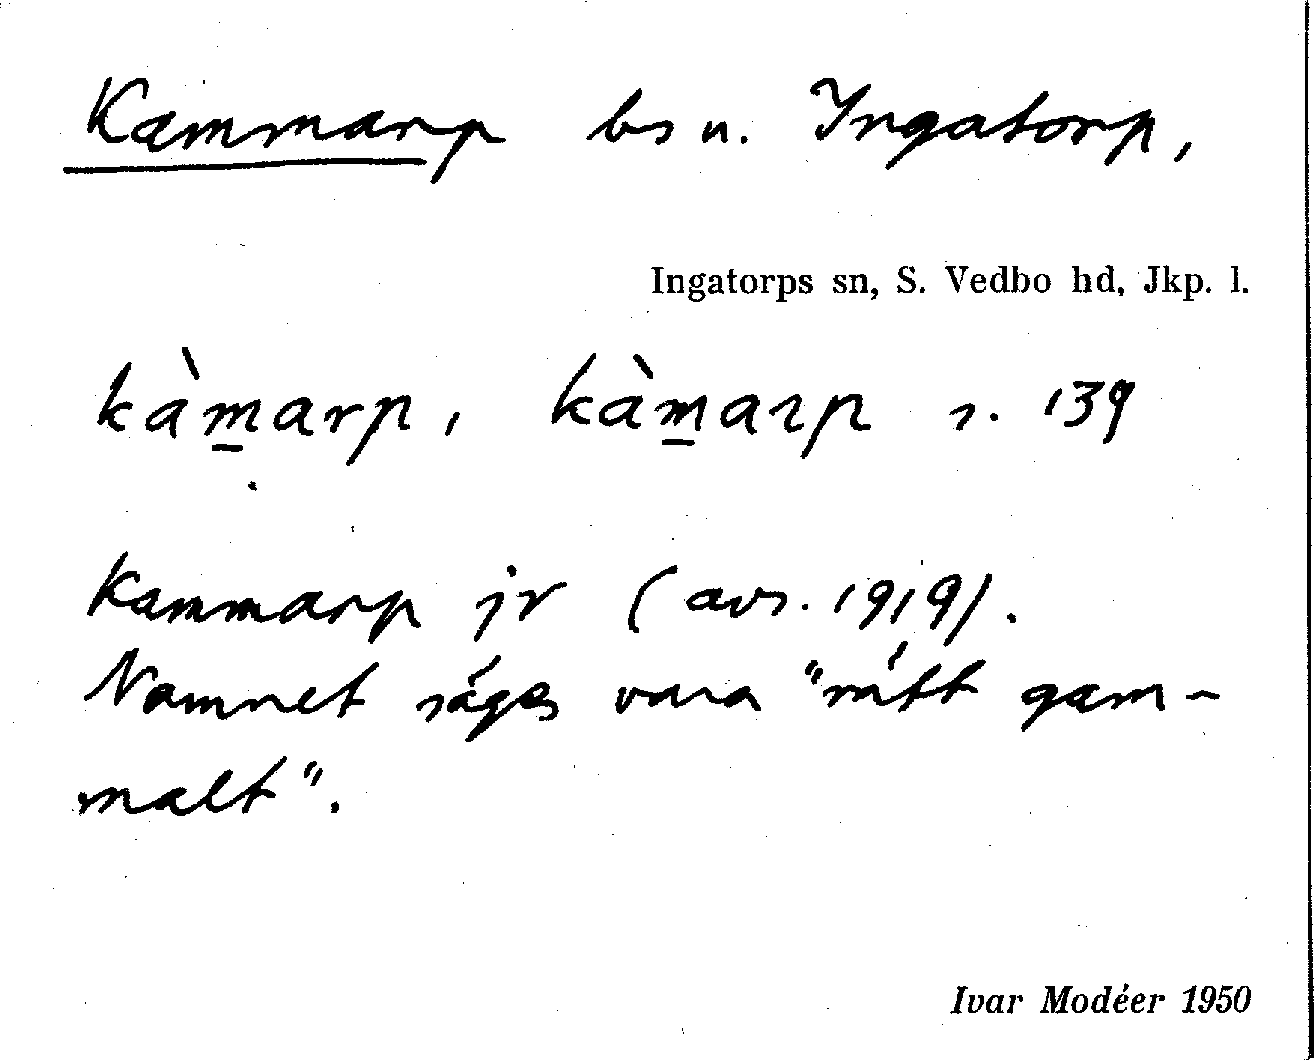 Kammarp bs u. Ingatorp,
Ingatorps sn, S. Vedbo hd, Jkp. l.
kàm̲arp, kàm̲aɿp s. 139
Kammarp jr (avs. 1919).
Namnet säges vara "rätt gam-
malt".
Ivar Modéer 1950